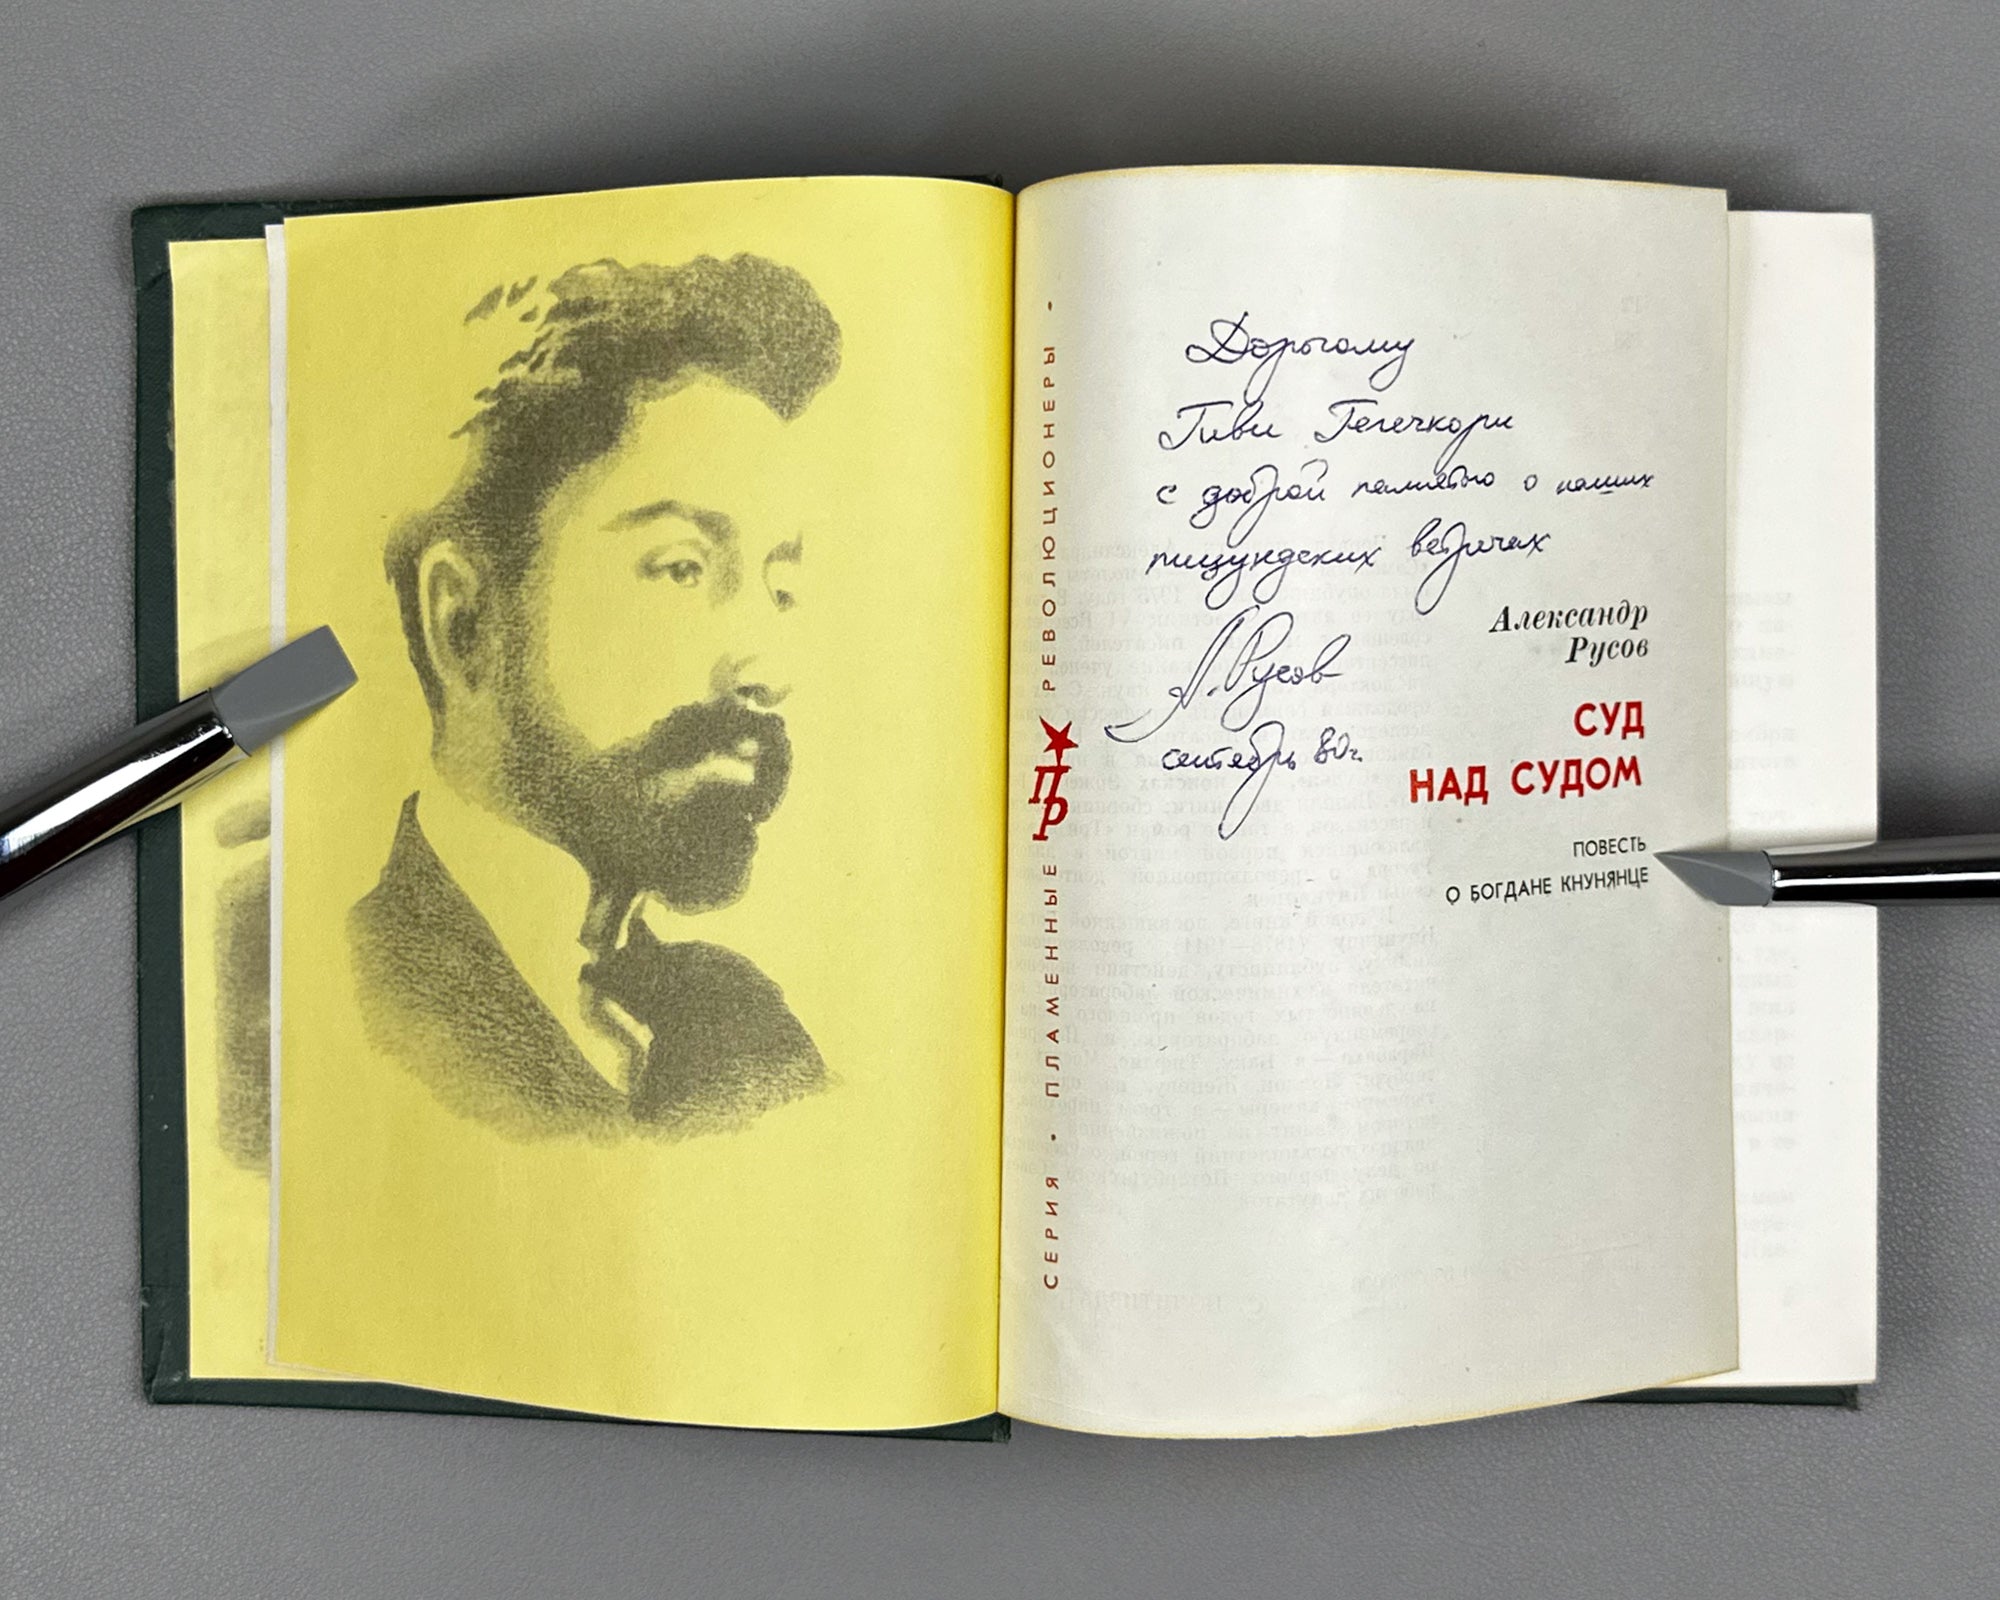 Дорогому
Гиви Гегечкори
с доброй памятью о наших
пицундских встречах
А. Русов
сентябрь 80г.
Александр
Русов
СУД
НАД СУДОМ
ПОВЕСТЬ
О БОГДАНЕ КНУНЯНЦЕ
СЕРИЯ • ПЛАМЕННЫЕ ПР РЕВОЛЮЦИОНЕРЫ •